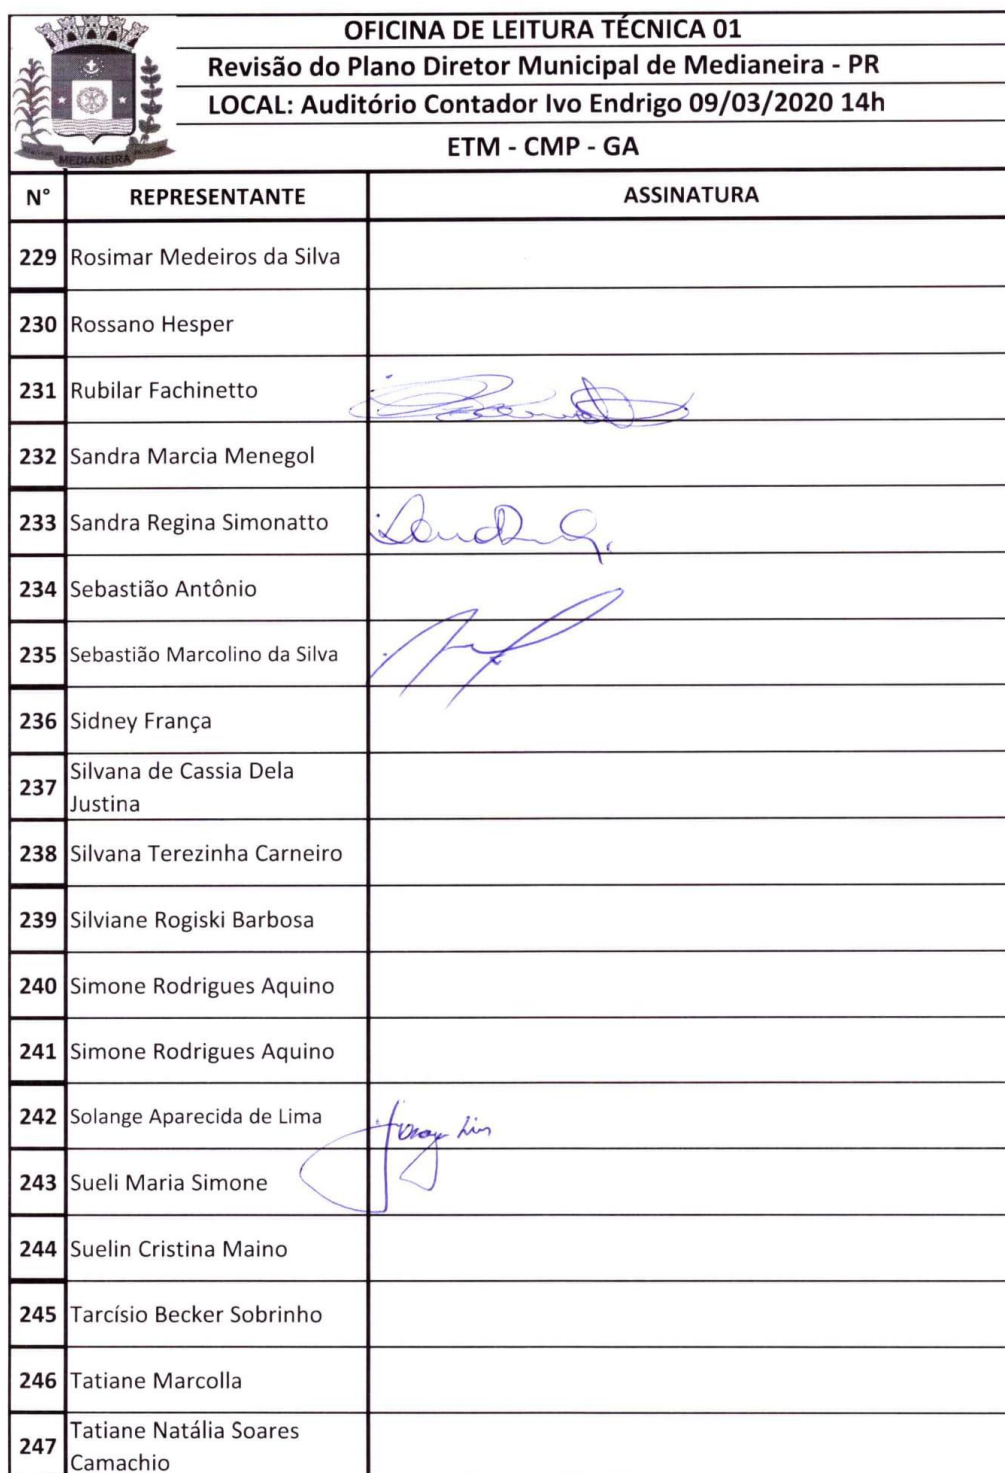 OFICINA DE LEITURA TÉCNICA 01
Revisão do Plano Diretor Municipal de Medianeira - PR
LOCAL: Auditório Contador Ivo Endrigo 09/03/2020 14h
ETM - CMP - GA
MEDIANEIRA
N° REPRESENTANTE ASSINATURA
229 Rosimar Medeiros da Silva
230 Rossano Hesper
231 Rubilar Fachinetto
232 Sandra Marcia Menegol
233 Sandra Regina Simonatto
234 Sebastião Antônio
235 Sebastião Marcolino da Silva
236 Sidney França
237 Silvana de Cassia Dela
Justina
238 Silvana Terezinha Carneiro
239 Silviane Rogiski Barbosa
240 Simone Rodrigues Aquino
241 Simone Rodrigues Aquino
242 Solange Aparecida de Lima
243 Sueli Maria Simone
244 Suelin Cristina Maino
245 Tarcísio Becker Sobrinho
246 Tatiane Marcolla
247 Tatiane Natália Soares
Camachio